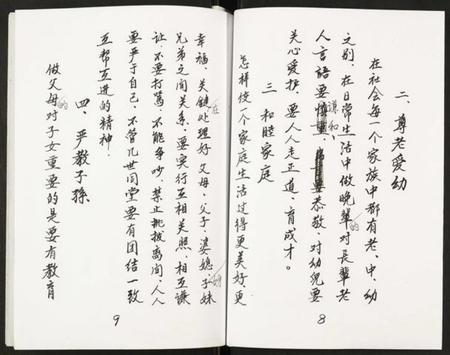 二、尊老爱幼
在社会每一个家族中都有老、中、幼
之别，在日常生活中做晚辈的对长辈老
人言語要谨和、要恭敬，对幼兒要
关心爱护，要人人走正道，育成才。
三、和睦家庭
怎样使一个家庭生活过得更美好更
8
幸福，关键在处理好父母、父子、婆媳、子妹
兄弟之间关系，要实行互相关照，相互谦
让，不要打骂，不能争吵，禁止挑拨离间，人人
要严于自己，不管几世同堂要有团结一致
互帮互进的精神。
四、严教子孫
做父母的对子女重要的是要有教育
9